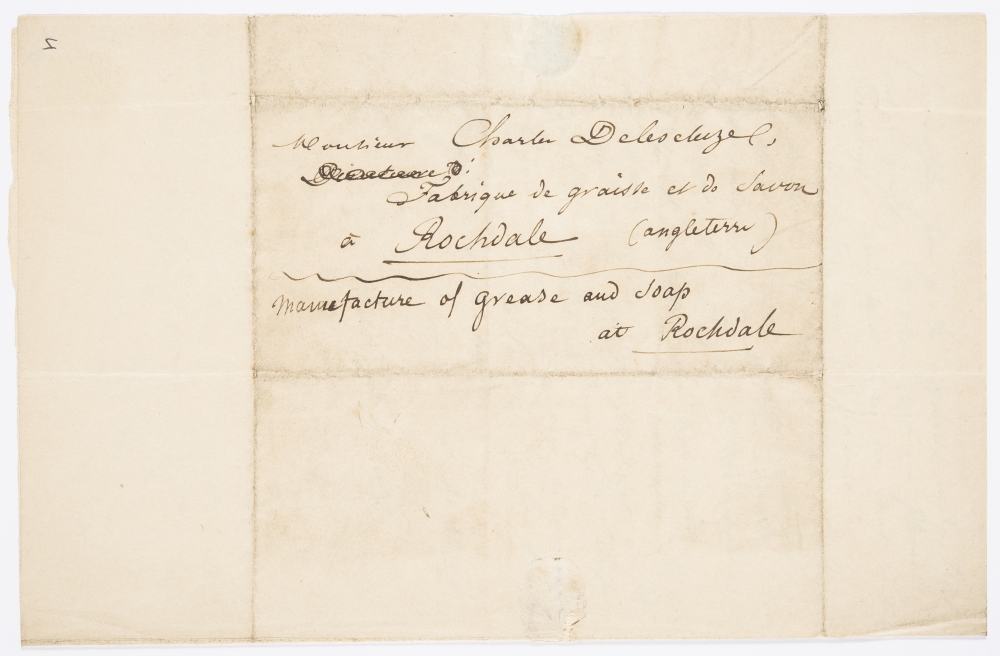 2
Monsieur Charles Delescluze,
Fabrique de graisse et de Savon
à Rochdale (angleterre)
manufacture of grease and soap
at Rochdale